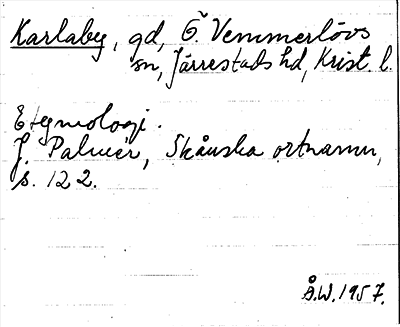 Karlaby, gd, Ö. Vemmerlövs
sn, Järrestads hd, Krist. l.
Etymologi.
J. Palmér, Skånska ortnamn,
s. 122.
Å.W. 1957.